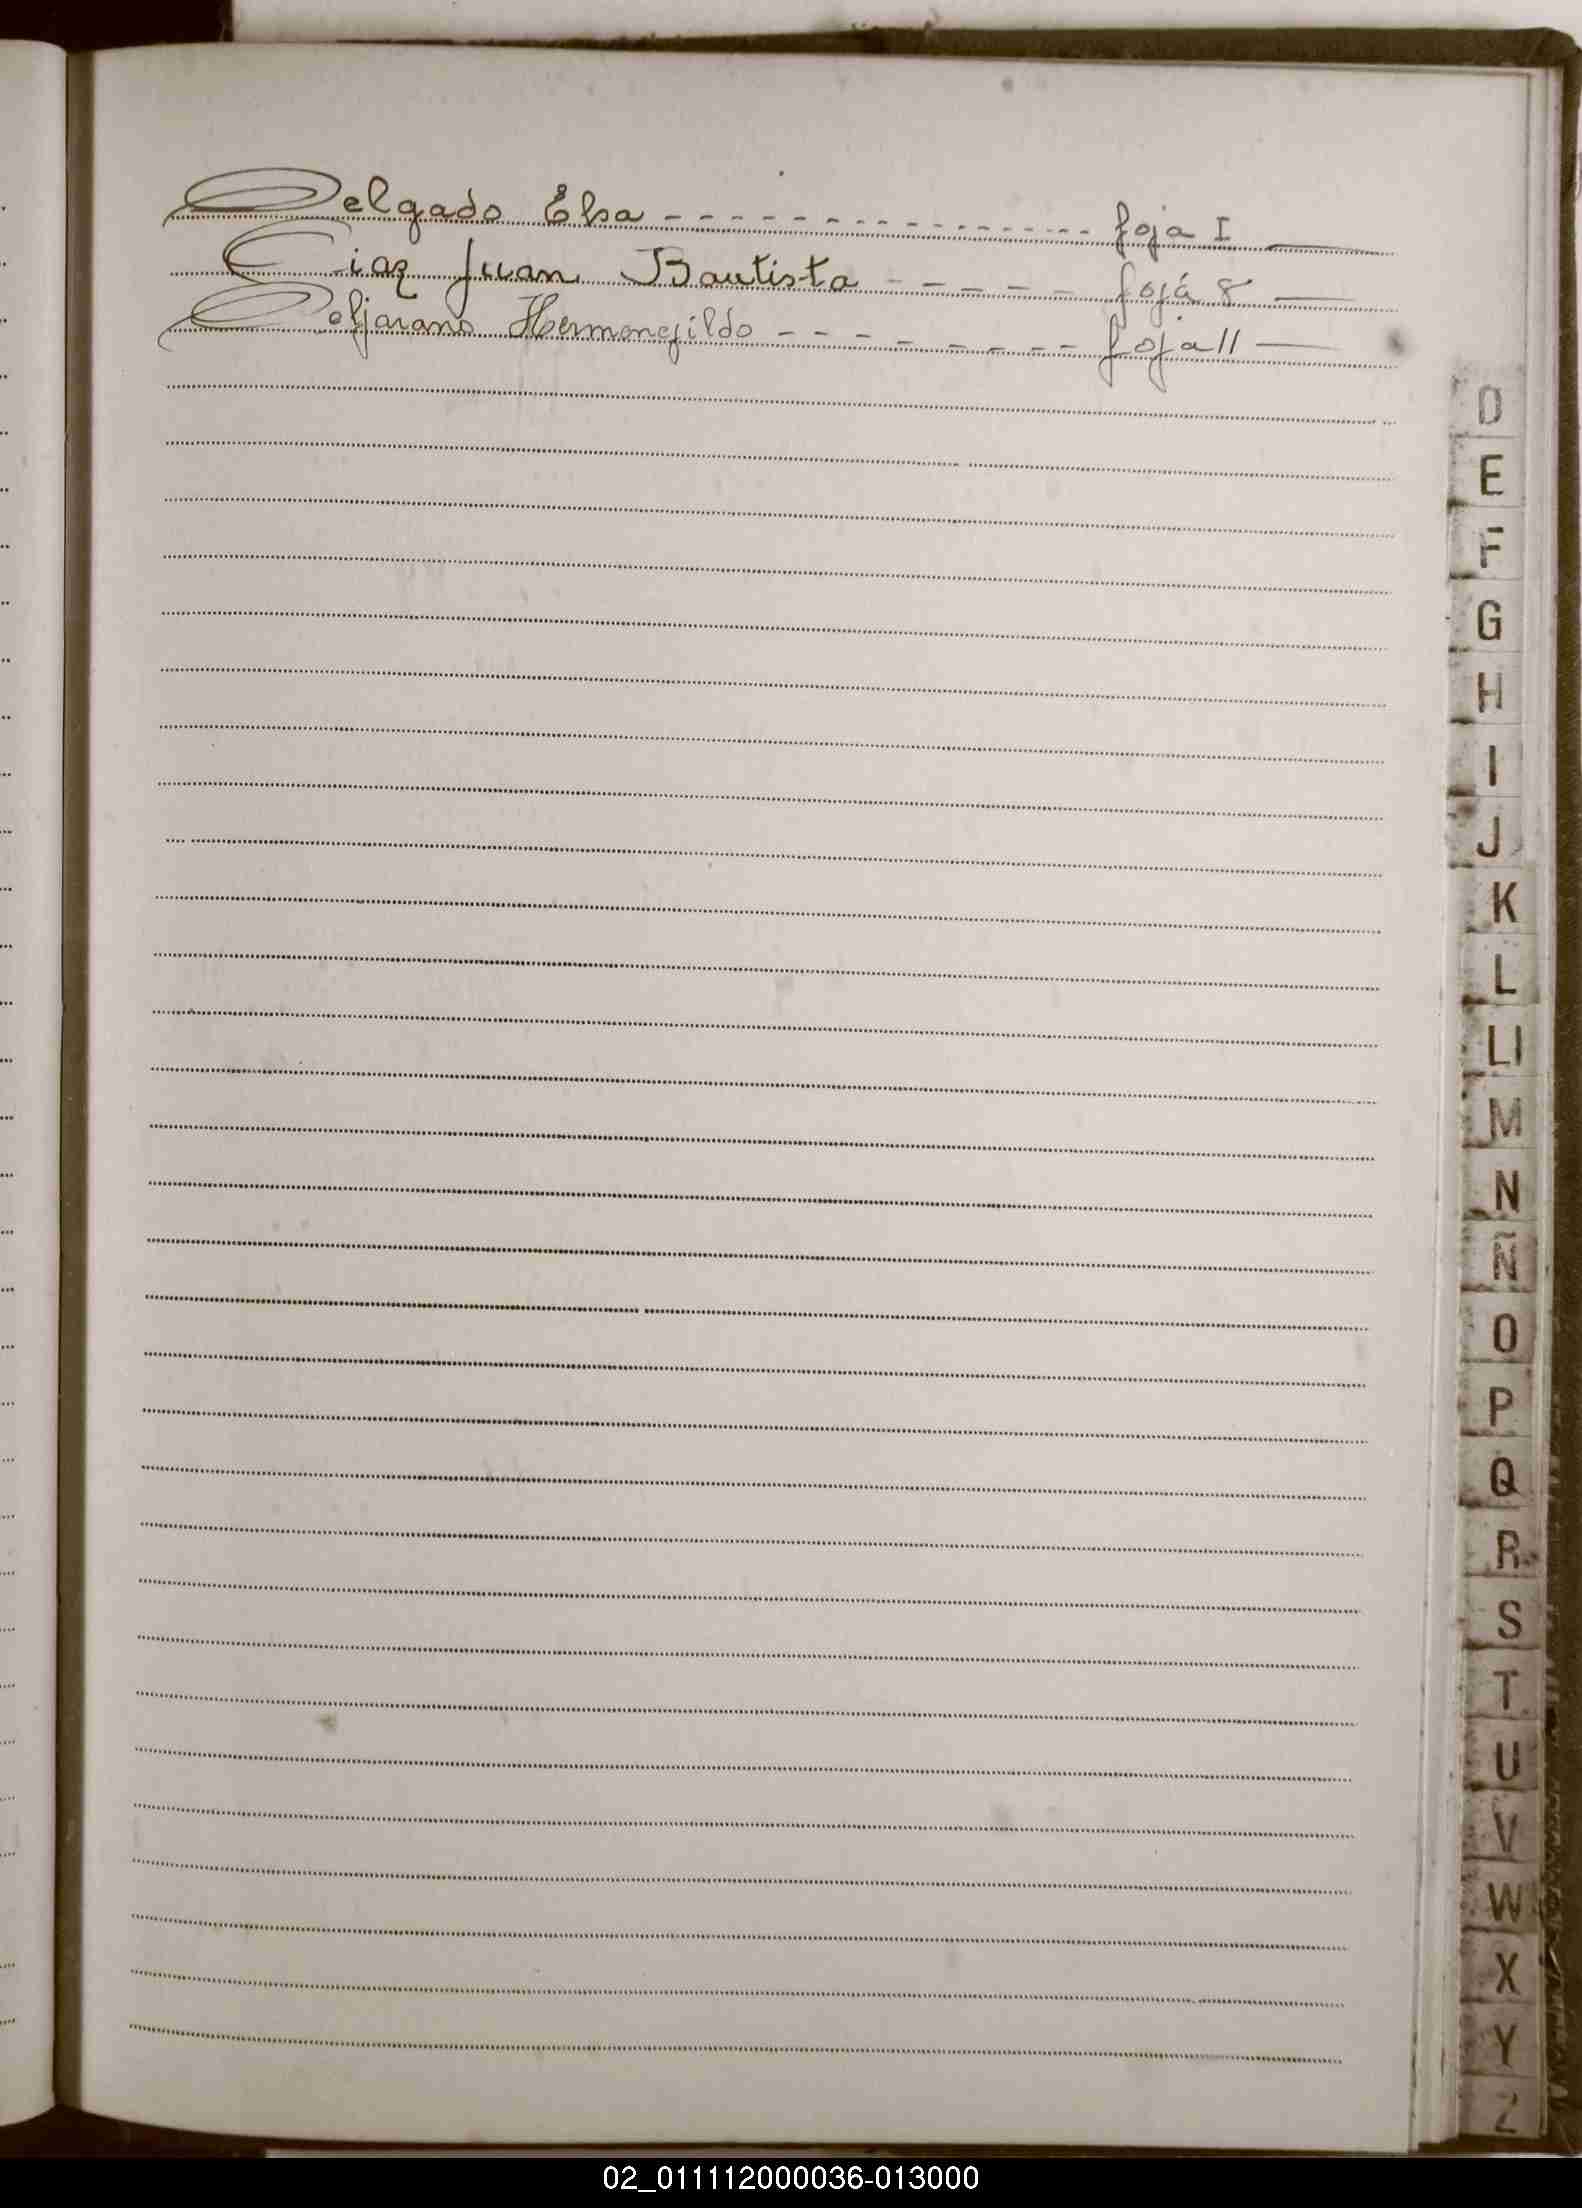 Delgado Elsa - - - - - - - - - - - - - - - foja I ——
Diaz Juan Bautista - - - - - - fojá 8 ——
Deljarano Hermenejildo - - - - - - - - foja 11 ——
D
E
F
G
H
I
J
K
L
Ll
M
N
Ñ
O
P
Q
R
S
T
U
V
W
X
Y
Z
02_011112000036-013000